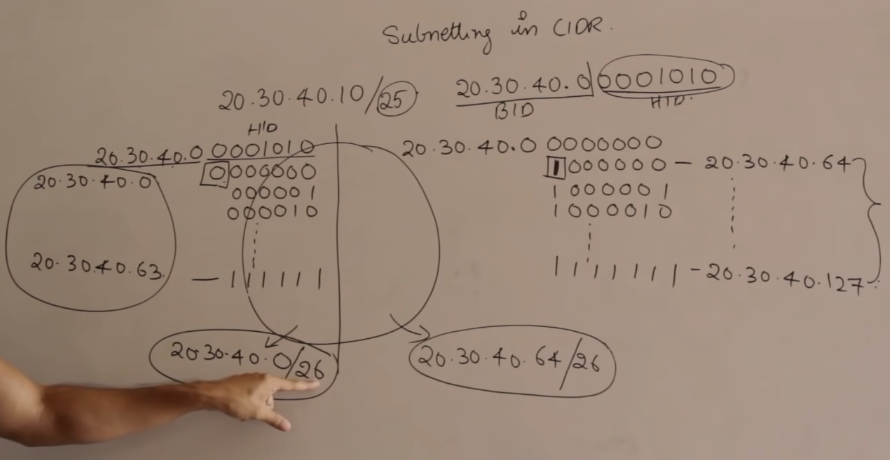 Subnetting in CIDR.
20.30.40.10/25
20.30.40.0 0001010
BID
HID.
HID
20.30.40.0 0001010
20.30.40.0 0000000
000001
000010
20.30.40.63 — 111111
20.30.40.0/26
20.30.40.0 0000000
1000000 — 20.30.40.64
1000001
1000010
1111111 - 20.30.40.127
20.30.40.64/26